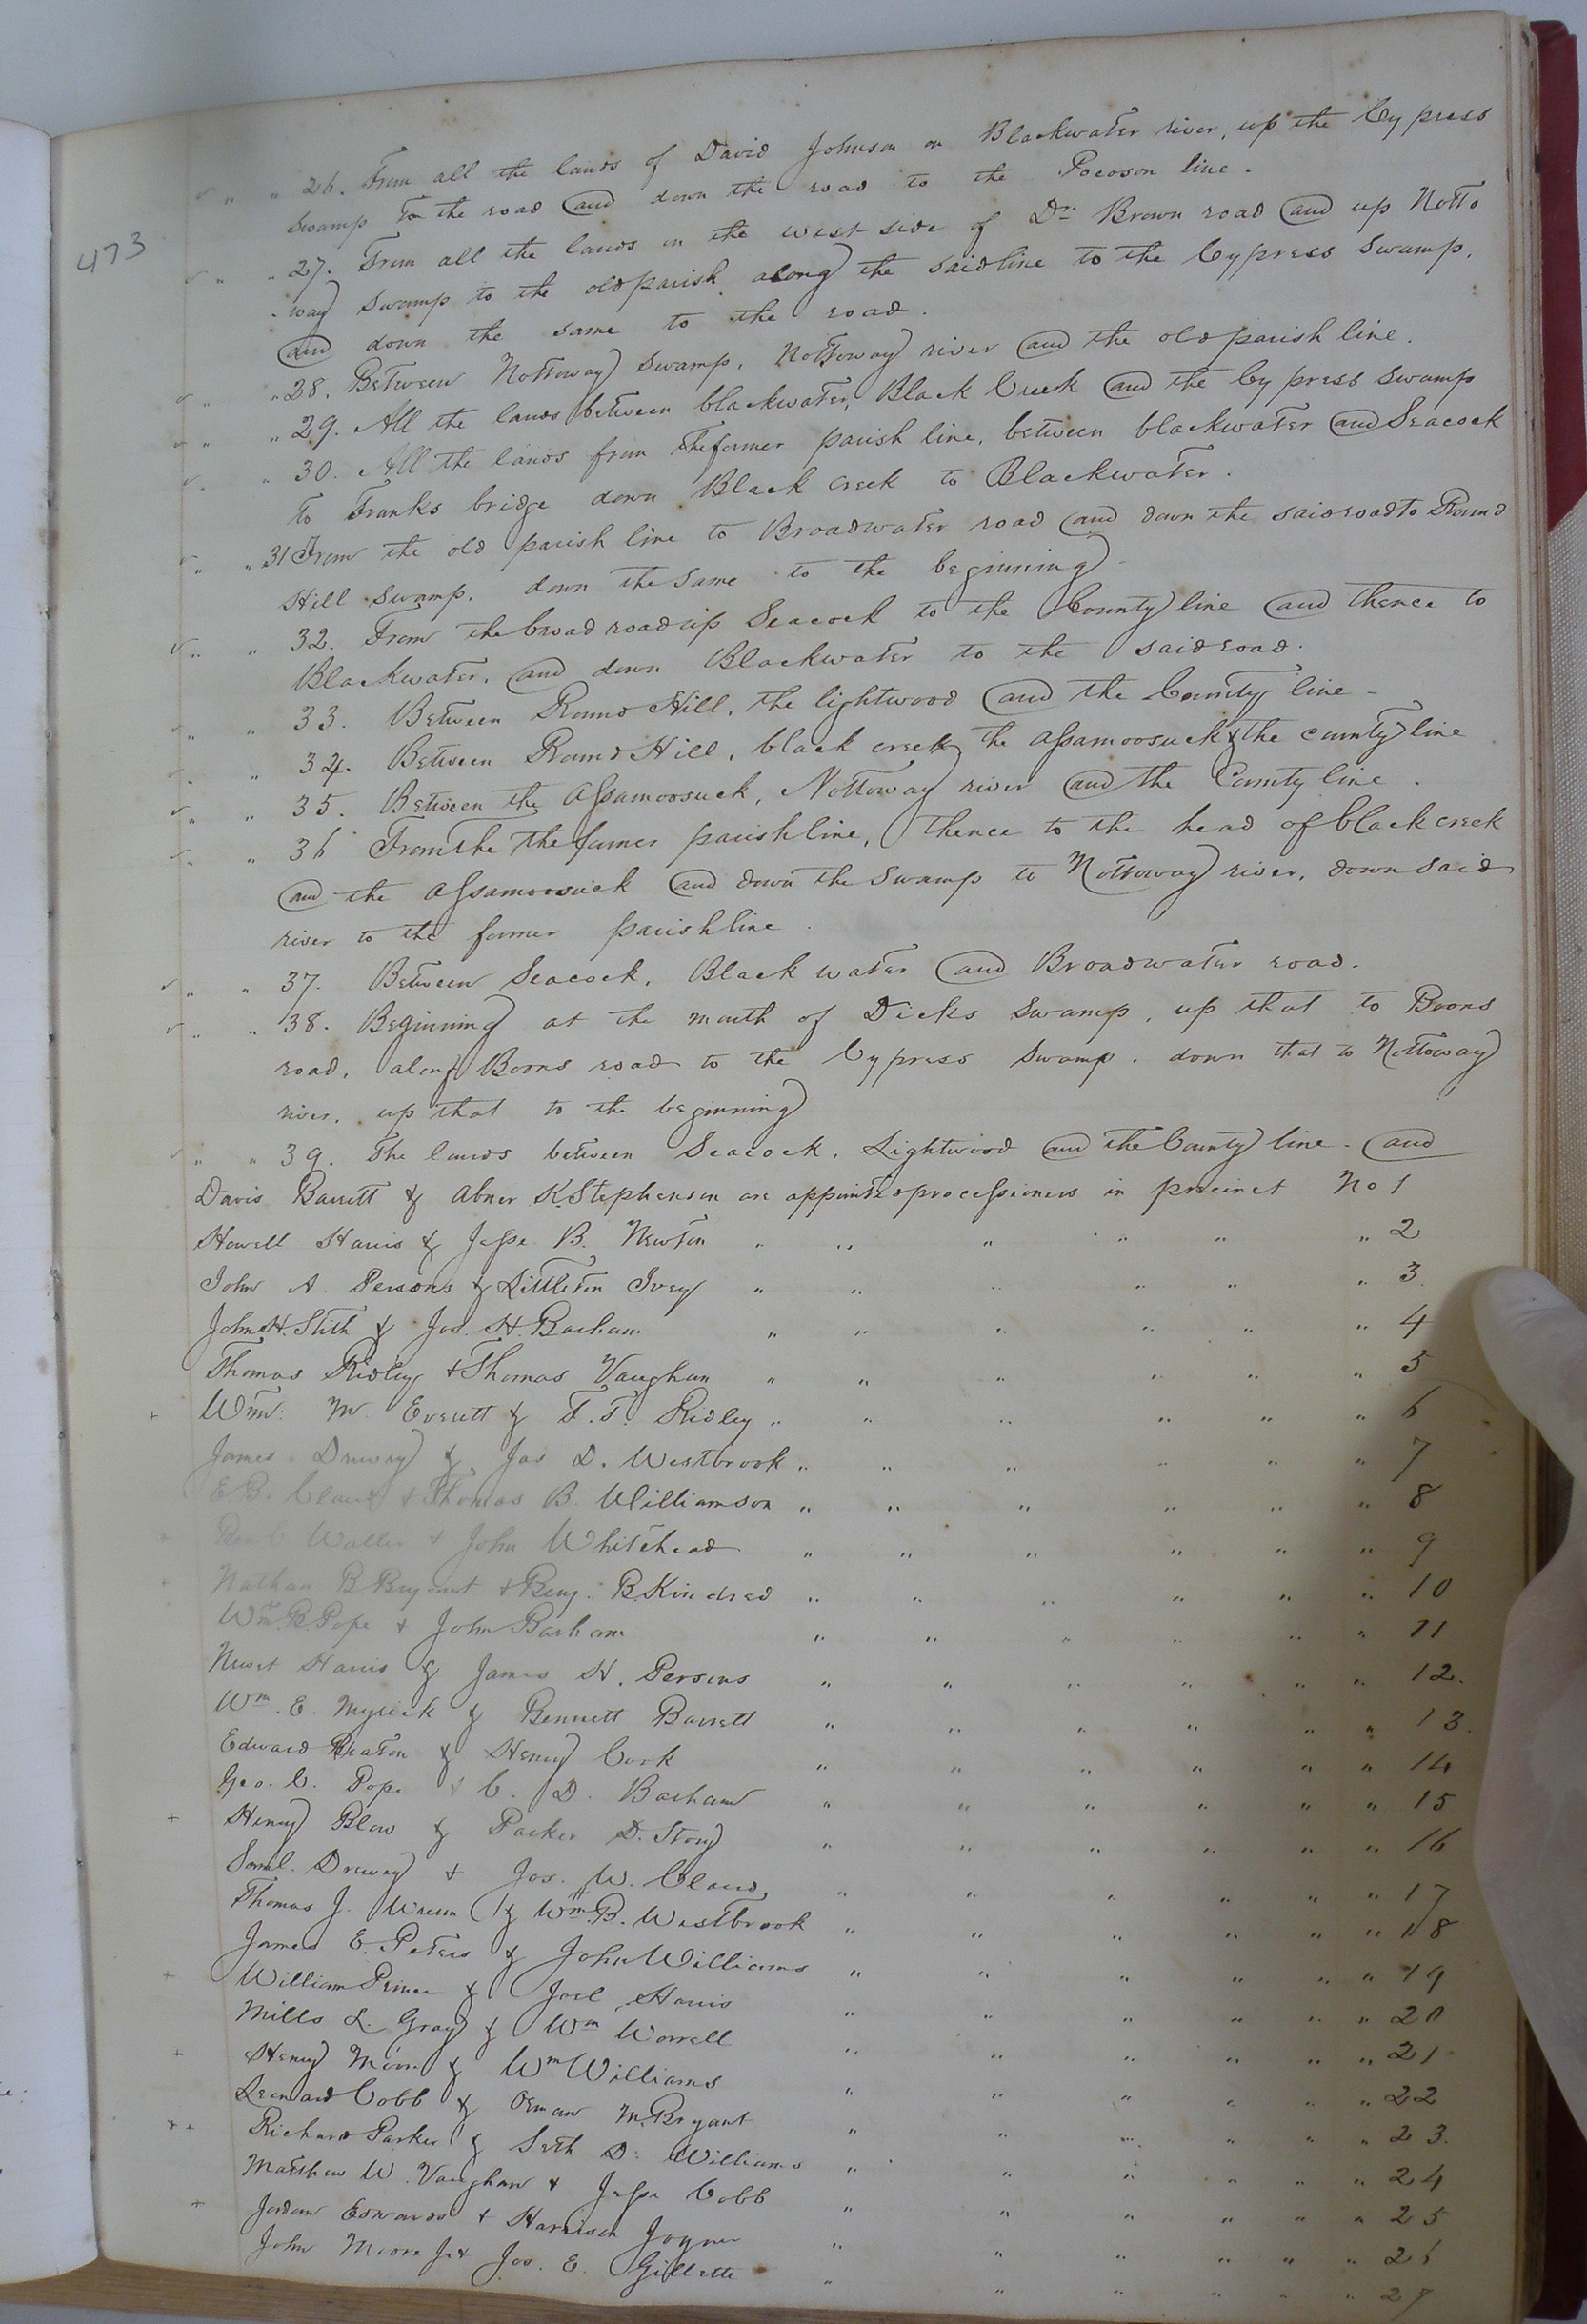 473
" " 26. From all the lands of David Johnson on Blackwater river, up the Cypress
Swamp to the road and down the road to the Pocoson line.
" " 27. From all the lands on the west side of Dr. Brown road and up Notto
way Swamp to the old parish along the said line to the Cypress Swamp,
and down the same to the road.
" " 28. Between Nottoway Swamp, Nottoway river and the old parish line.
" " 29. All the lands between blackwater, Black Creek and the Cypress Swamp
" " 30. All the lands from the former parish line, between blackwater and Seacock
to Franks bridge down Black creek to Blackwater.
" " 31 From the old parish line to Broadwater road and down the said road to Round
Hill Swamp, down the same to the beginning.
" " 32. From the broad road up Seacock to the County line and thence to
Blackwater, and down Blackwater to the said road.
" " 33. Between Round Hill, the lightwood and the County line -
" " 34. Between Round Hill, black creek, the Assamoosuck & the county line
" " 35. Between the Assamoosuck, Nottoway river and the County line.
" " 36 From the the former parish line, thence to the head of black creek
and the Assamoosuck and down the Swamp to Nottoway river, down said
river to the former parish line.
" " 37. Between Seacock, Black water and Broadwater road.
" " 38. Beginning at the mouth of Dicks Swamp, up that to Boons
road, along Boons road to the Cypress Swamp, down that to Nottoway
river, up that to the beginning
" " 39. The lands between Seacock, Lightwood and the County line. and
Davis Barrett & Abner K. Stephenson are appointed processioners in precinct No 1
Howell Harris & Jesse B. Newton " " " " " " 2
John A. Persons & Littleton Ivey " " " " " " 3.
John H. Stith & Jos. H. Barham " " " " " " 4
Thomas Ridley & Thomas Vaughan " " " " " " 5
+ Wm. M. Everett & F. T. Ridley " " " " " " 6
James Drewry & Jas D. Westbrook " " " " " " 7
E B. Claud & Thomas B. Williamson " " " " " " 8
+ Ben C. Waller & John Whitehead " " " " " " 9
+ Nathan B Bryant & Benj. B. Kindred " " " " " " 10
Wm. B. Pope & John Barham " " " " " " 11
Newit Harris & James H. Persons " " " " " " 12.
Wm. E. Myrick & Bennett Barrett " " " " " " 13.
Edward Beaton & Henry Cook " " " " " " 14
Geo. C. Pope & C. D. Barham " " " " " " 15
+ Henry Blow & Packer D. Story " " " " " " 16
Saml. Drewry & Jos. W. Claud, " " " " " " 17
Thomas J. Wrenn & Wm. B. Westbrook " " " " " " 18
James E. Peters & John Williams " " " " " " 19
+ William Prince & Joel Harris " " " " " " 20
Mills L. Gray & Wm Worrell " " " " " " 21
+ Henry Moore & Wm Williams " " " " " " 22
Leonard Cobb & M. Bryant " " " " " " 23.
+ + Richard Parker & Seth D. Williams " " " " " " 24
Matthew W. Vaughan & Jesse Cobb " " " " " " 25
+ Jordan Edwards & Harrison Joyner " " " " " " 26
John Moore Jr & Jos. E. Gillette " " " " " " 27